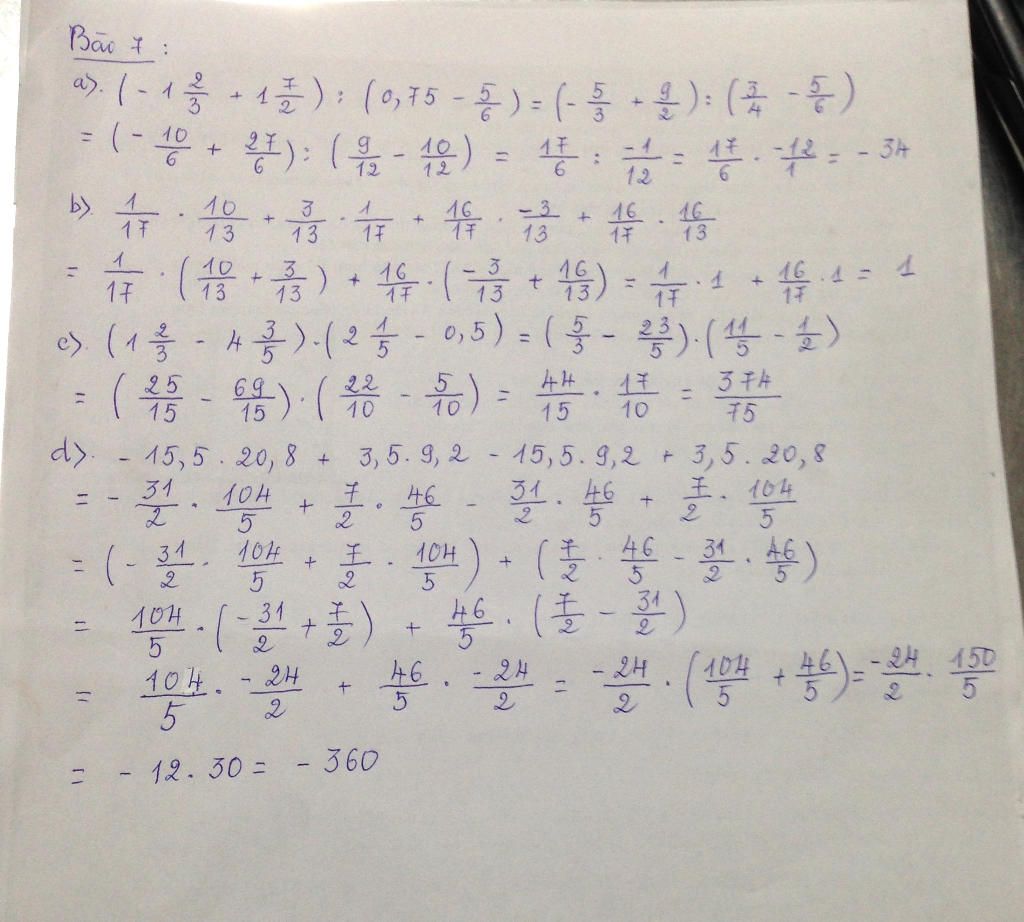 Bão 7 :
a). (- 1 2/3 + 1 7/2) : (0,75 - 5/6) = (- 5/3 + 9/2) : (3/4 - 5/6)
= (- 10/6 + 27/6) : (9/12 - 10/12) = 17/6 : -1/12 = 17/6 . -12/1 = - 34
b). 1/17 . 10/13 + 3/13 . 1/17 + 16/17 . -3/13 + 16/17 . 16/13
= 1/17 . (10/13 + 3/13) + 16/17 . (-3/13 + 16/13) = 1/17 . 1 + 16/17 . 1 = 1
c). (1 2/3 - 4 3/5) . (2 1/5 - 0,5) = (5/3 - 23/5) . (11/5 - 1/2)
= (25/15 - 69/15) . (22/10 - 5/10) = 44/15 . 17/10 = 374/75
d). - 15,5 . 20,8 + 3,5 . 9,2 - 15,5 . 9,2 + 3,5 . 20,8
= - 31/2 . 104/5 + 7/2 . 46/5 - 31/2 . 46/5 + 7/2 . 104/5
= (- 31/2 . 104/5 + 7/2 . 104/5) + (7/2 . 46/5 - 31/2 . 46/5)
= 104/5 . (-31/2 + 7/2) + 46/5 . (7/2 - 31/2)
= 104/5 . -24/2 + 46/5 . -24/2 = -24/2 . (104/5 + 46/5) = -24/2 . 150/5
= - 12 . 30 = - 360